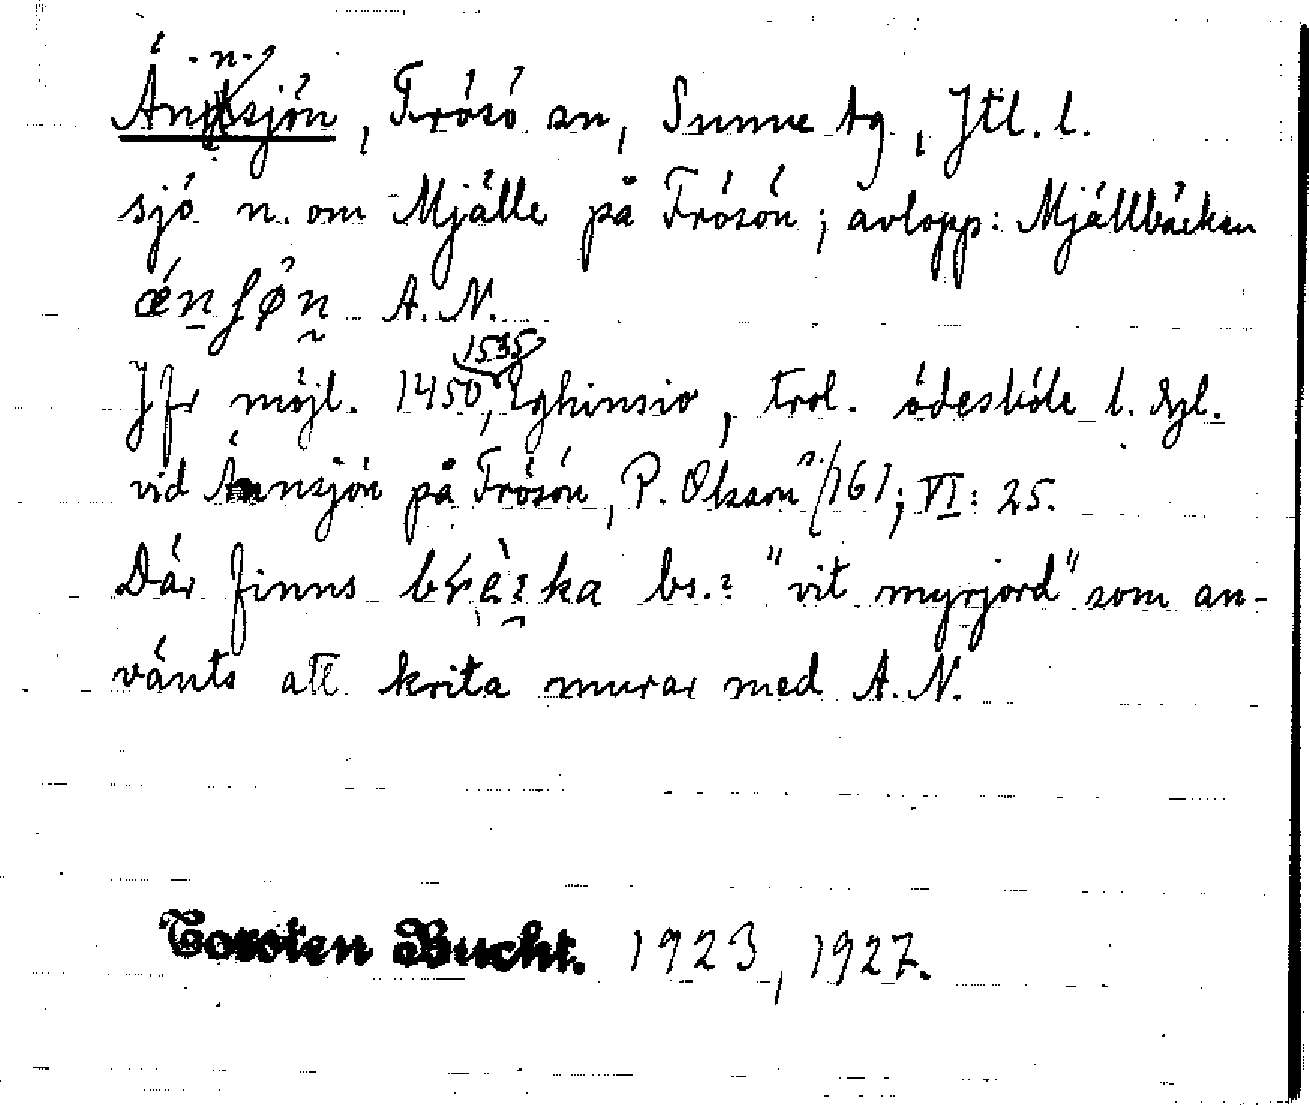 Ännsjön, Frösö sn, Sunne tg, Jtl. l.
sjö n. om Mjälle på Frösön; avlopp: Mjällbäcken
ǽnʃø̀n A. N.
Jfr möjl. 1450, 1535 Eghinsio, trol. ödesböle l. dyl.
vid Ännsjön på Frösön, P. Olsson /161; VI: 25.
Där finns ka bs.: "vit myrjord" som an-
vänts att krita murar med A. N.
Torsten Bucht. 1923, 1927.